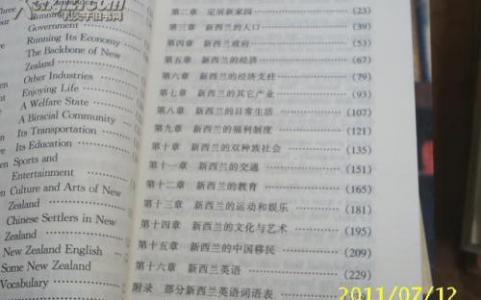 Three
Running
Government
Running Its Economy
The Backbone of New
Zealand
Other Industries
Enjoying Life
A Welfare State
A Biracial Community
Its Transportation
Its Education
Sports and
Entertainment
Culture and Arts of New
Zealand
Chinese Settlers in New
Zealand
New Zealand English
Some New Zealand
Vocabulary
第二章 定居新家园 (23)
第三章 新西兰的人口 (39)
第四章 新西兰政府 (53)
第五章 新西兰的经济 (67)
第六章 新西兰的经济支柱 (79)
第七章 新西兰的其它产业 (93)
第八章 新西兰的日常生活 (107)
第九章 新西兰的福利制度 (121)
第十章 新西兰的双种族社会 (135)
第十一章 新西兰的交通 (151)
第十二章 新西兰的教育 (165)
第十三章 新西兰的运动和娱乐 (181)
第十四章 新西兰的文化与艺术 (195)
第十五章 新西兰的中国移民 (209)
第十六章 新西兰英语 (229)
附录 部分新西兰英语词语表
2011/07/12